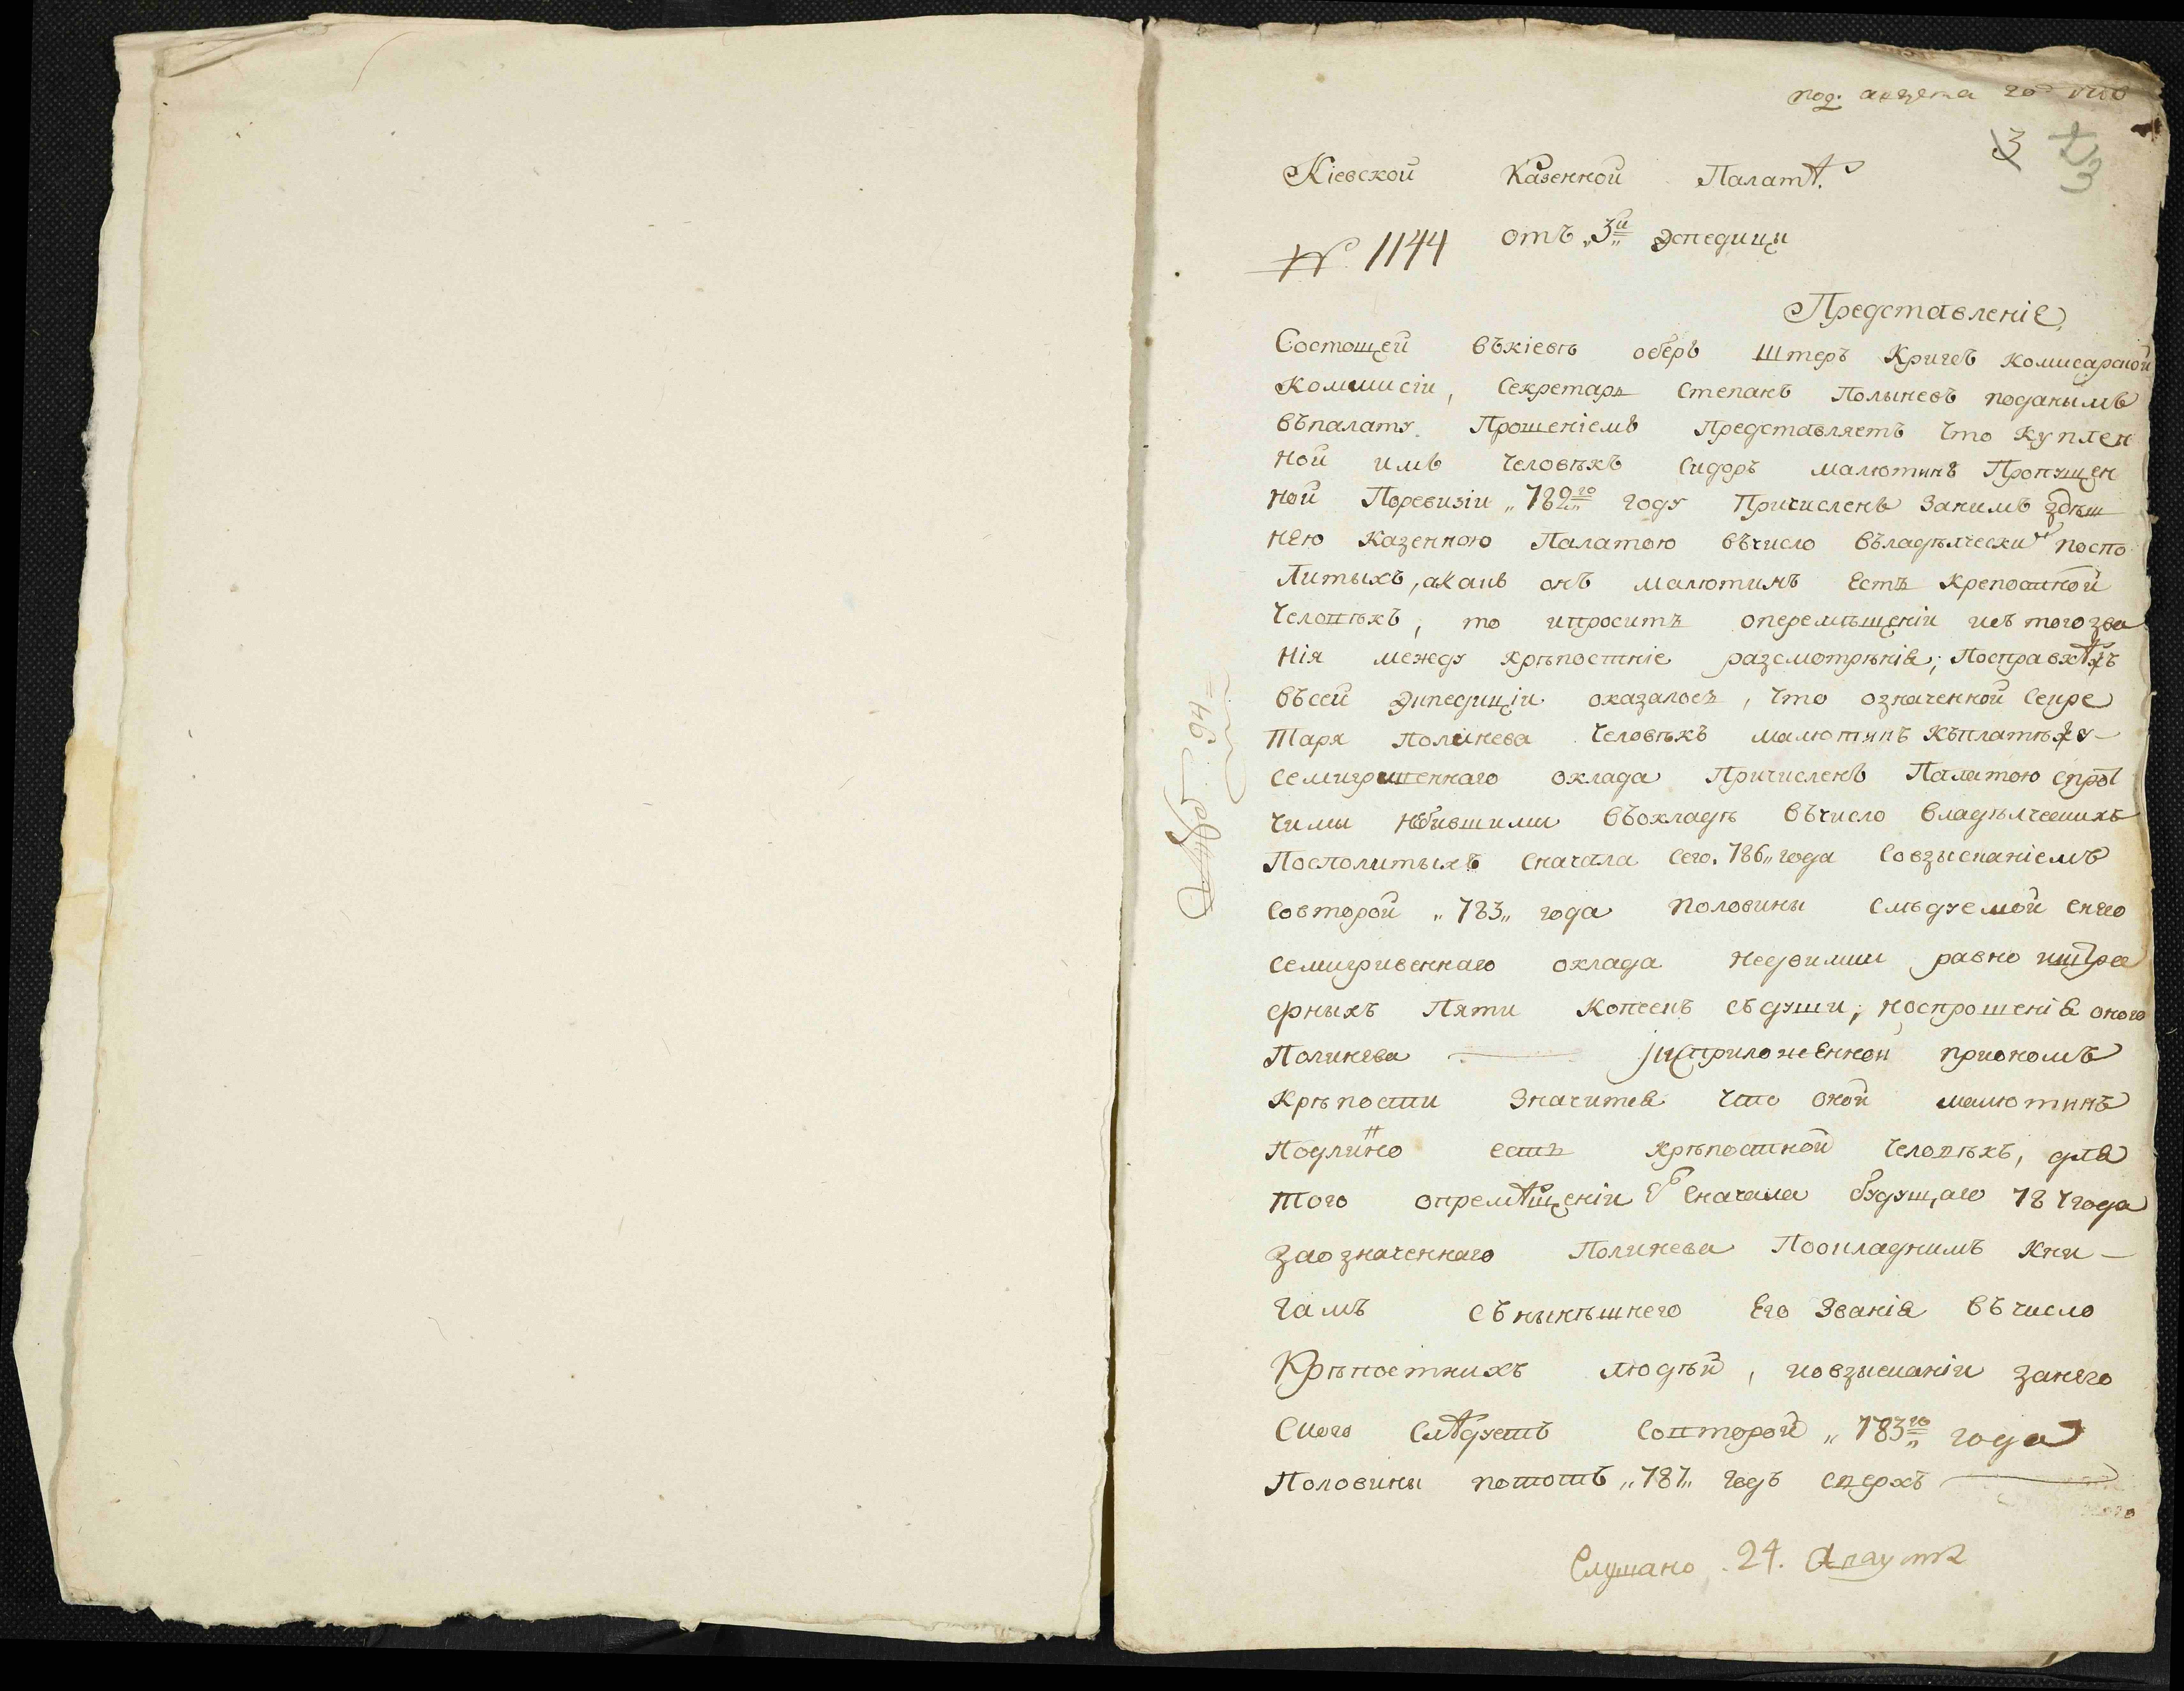 под. августа 20
3 3
Кіевской Казенной Палатѣ.
№ 1144 отъ „3й„ Эспедиции
Представленіе
Состощей въкіевѣ оберъ Штеръ Кригсъ комисарской
коммисіи, Секретарь Степанъ Полыневъ поданымъ
въпалату Прошеніемъ Представляетъ Что Куплен
ной имъ Человѣкъ Сидоръ малютинъ Пропущен
ной Поревизіи „782го„ году Причисленъ Занимъ здѣш
нею Казенною Палатою вчисло въладѣлческих поспо
литыхъ, а онъ малютинъ Есть крепостной
Человѣкъ, то ипроситъ оперемѣщеніи изъ того зва
нія между крѣпостніе разсмотрѣнія; Посправкѣ
въсей Экпедиціи оказалось, Что означенной Секре
таря Полинева Человѣкъ малютинъ Къплатѣжу
семигривеннаго оклада Причисленъ Палатою спро
чими небившими въокладѣ въчисло владѣлческихъ
Посполитыхъ Сначала Сего „786„ года Совзысканіемъ
Совторой „783„ года половины Слѣдуемой снего
семигривеннаго оклада недоимки равно
ернихъ Пяти Копеекъ съдуши; испрошенія оного
Полинева исприложенной приономъ
Крѣпости Значится Что оной малютинъ
Подлинно есть крѣпостной Человѣкъ, для
того опремѣщеніи Его сначала будущаго 787года
заозначеннаго Полинева Поокладнимъ кни-
гамъ съныкѣшнего Его Званія въчисло
Крѣпостнихъ людѣй, иовзысканіи занего
Сього Слѣдуетъ Совторой „783го„ года
Половины пототъ „787„ годъ сверхъ
того
Слушано 24. Августа